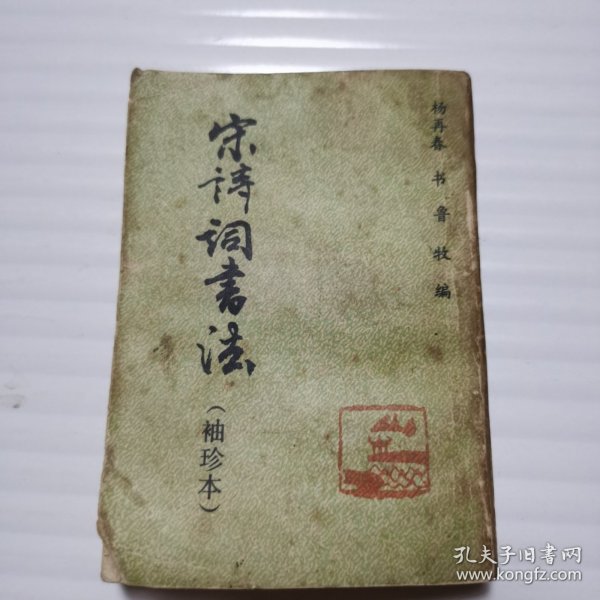 杨再春 书 鲁牧 编
宋诗词书法
(袖珍本)
孔夫子旧书网
www.kongfz.com